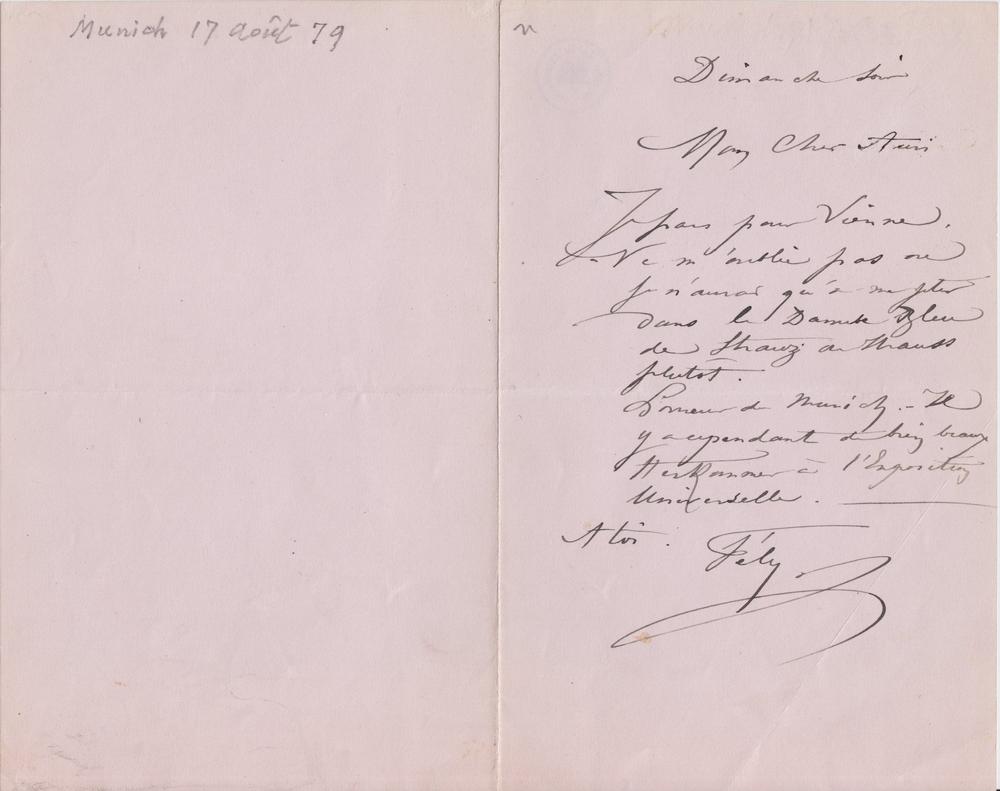 Munich 17 août 79
Dimanche soir
Mon Cher Ami
Je pars pour Vienne.
Ne m'oublie pas ou
je n'aurai qu'à me jeter
dans le Danube Bleu
de Strauz ou Strauss
plutôt.
L'horreur de Munich. - Il
y a cependant de bien beaux
Herkomer à l'Exposition
Universelle.
A toi. Fély